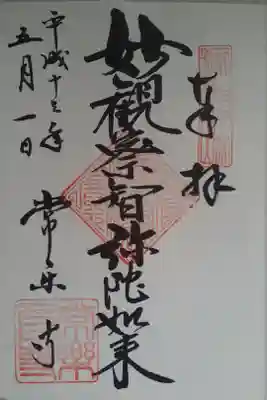 奉拝
妙観察智弥陀如来
常楽寺
平成十三年
五月一日